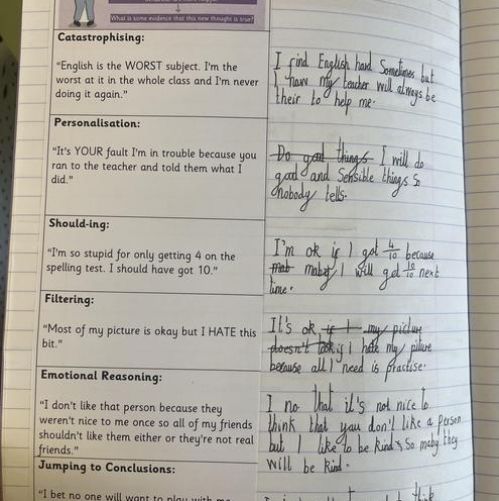 What is some evidence that this new thought is true?
Catastrophising:
"English is the WORST subject. I'm the
worst at it in the whole class and I'm never
doing it again."
I find English hard Sometimes but
I have my teacher will always be
their to help me.
Personalisation:
"It's YOUR fault I'm in trouble because you
ran to the teacher and told them what I
did."
Do good things I will do
good and Sensible things so
nobody tells.
Should-ing:
"I'm so stupid for only getting 4 on the
spelling test. I should have got 10."
I'm ok if I got 4/10 because
mab mabey I will get 10/10 next
time.
Filtering:
"Most of my picture is okay but I HATE this
bit."
It's ok if I my picture
doesn't look if I hate my piture
because all I need is practise.
Emotional Reasoning:
"I don't like that person because they
weren't nice to me once so all of my friends
shouldn't like them either or they're not real
friends."
I no that it's not nice to
think that you don't like a person
but I like to be kind so mabey they
will be kind.
Jumping to Conclusions:
"I bet no one will want to play with me